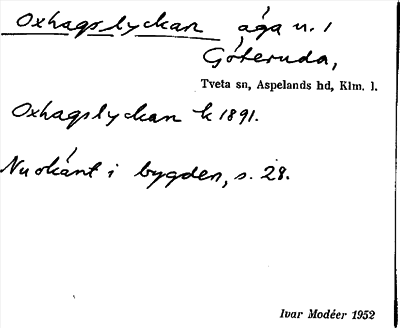 Oxhagslyckan äga n. 1
Göteruda,
Tveta sn, Aspelands hd, Klm. l.
Oxhagslyckan k 1891.
Nu okänt i bygden, s. 28.
Ivar Modéer 1952